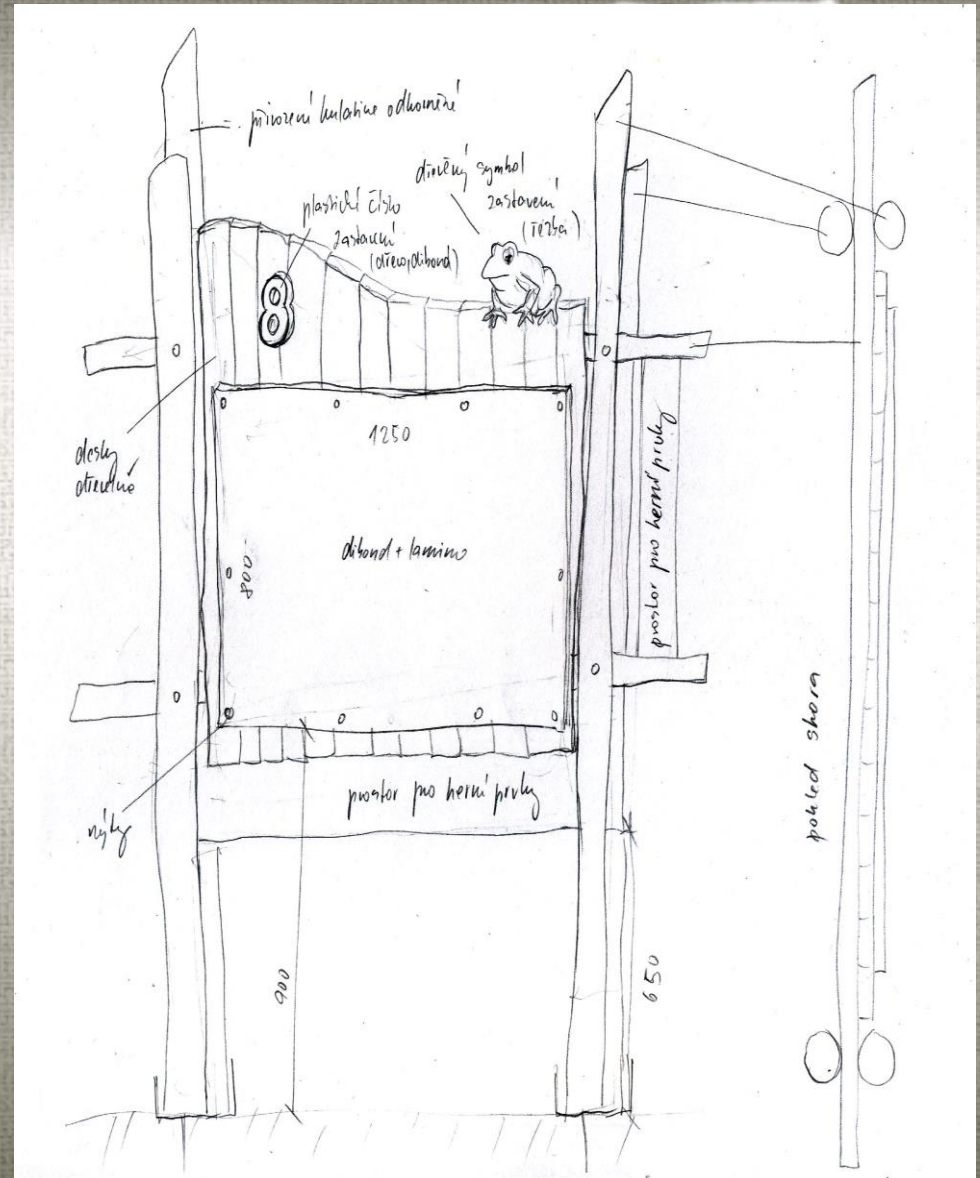 přirození kulatina odkorněné
dřevěný symbol
zastavení
(řezba)
plastické číslo
zastavení
(dřevo, dibond)
8
desky
dřevěné
1250
dibond + lamino
800
prostor pro herní prvky
prostor pro herní prvky
nýty
900
650
pohled shora